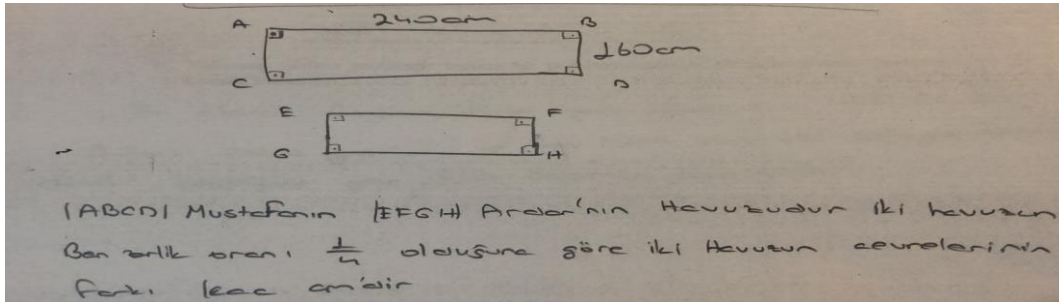 A 240cm B
160cm
C D
E F
G H
|ABCD| Mustafanın |EFGH| Arda'nın Havuzudur iki havuzun
Benzerlik oranı 1/4 olduğuna göre iki Havuzun çevrelerinin
farkı kaç cm'dir